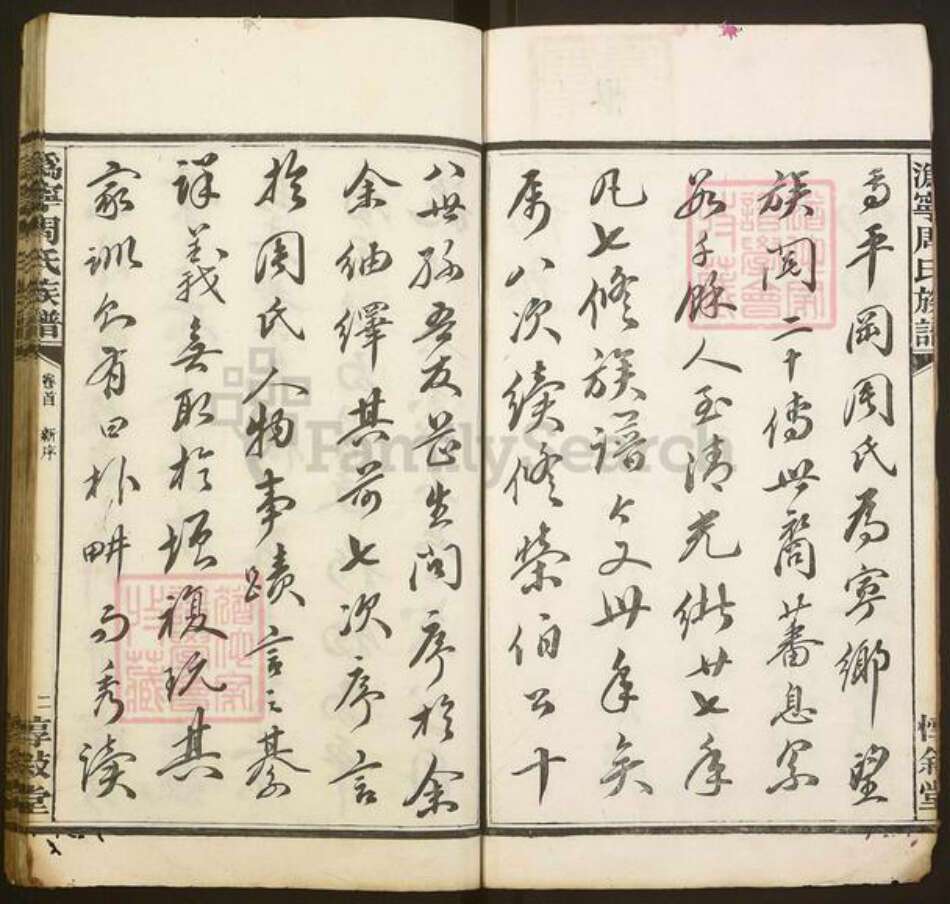 高平岡周氏為寧鄉望
族閱二十傳世裔蕃息眾
若千餘人至清光緒廿七年
凡七修族譜今又卅年矣
屬八次續修榮伯公十
八世孫吾友芷生問序於余
余紬繹其前七次序言
於周氏人物事蹟言之綦
詳義無取於頌複玩其
家訓分有曰朴畊而秀讀
溈寧周氏族譜
惇敘堂
溈寧周氏族譜
卷首 新序
二
惇敍堂
FamilySearch